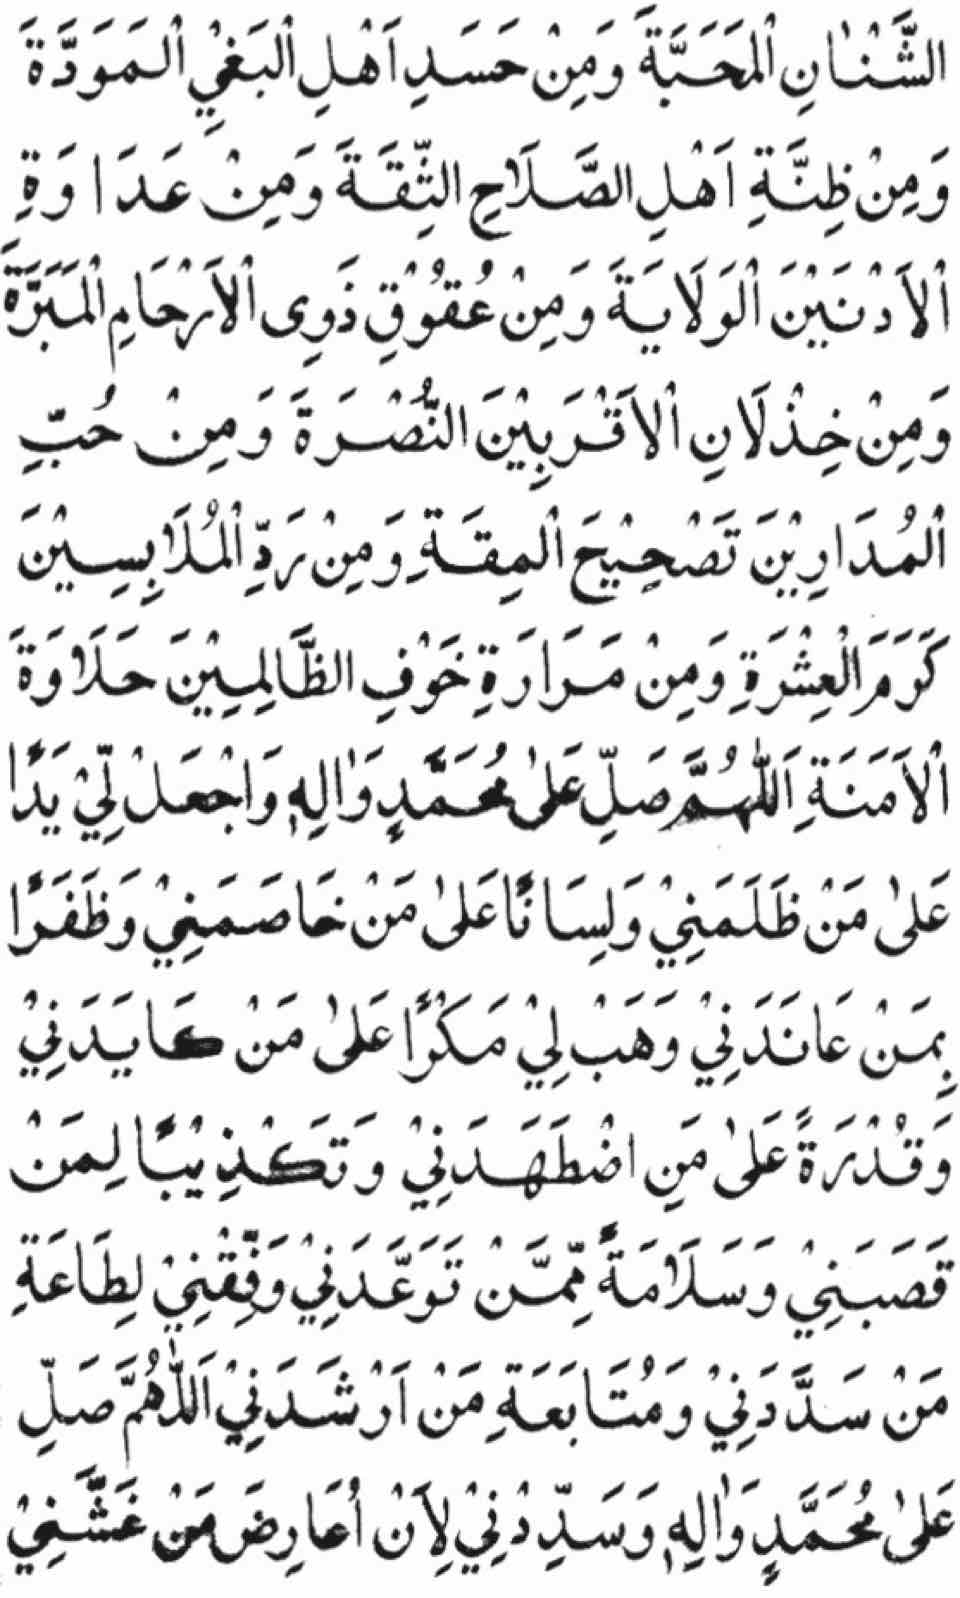 الشَّنْاٰنِ الْمَحَبَّةَ وَمِنْ حَسَدِ اَهْلِ الْبَغْيِ الْمَوَدَّةَ
وَمِنْ ظِنَّةِ اَهْلِ الصَّلَاحِ الثِّقَةَ وَمِنْ عَدَاوَةِ
الْاَدْنَيْنَ الْوَلَايَةَ وَمِنْ عُقُوْقِ ذَوِى الْاَرْحَامِ الْمَبَرَّةَ
وَمِنْ خِذْلَانِ الْاَقْرَبِيْنَ النُّصْرَةَ وَمِنْ حُبِّ
الْمُدَارِيْنَ تَصْحِيْحَ الْمِقَةِ وَمِنْ رَدِّ الْمُلَابِسِيْنَ
كَرَمَ الْعِشْرَةِ وَمِنْ مَرَارَةِ خَوْفِ الظَّالِمِيْنَ حَلَاوَةَ
الْاَمَنَةِ اَللّٰهُمَّ صَلِّ عَلٰى مُحَمَّدٍ وَاٰلِهٖ وَاجْعَلْ لِّيْ يَدًا
عَلٰى مَنْ ظَلَمَنِيْ وَلِسَانًا عَلٰى مَنْ خَاصَمَنِيْ وَظَفَرًا
بِمَنْ عَانَدَنِيْ وَهَبْ لِيْ مَكْرًا عَلٰى مَنْ كَايَدَنِيْ
وَقُدْرَةً عَلٰى مَنِ اضْطَهَدَنِيْ وَتَكْذِيْبًا لِمَنْ
قَصَبَنِيْ وَسَلَامَةً مِّمَّنْ تَوَعَّدَنِيْ وَفِّقْنِيْ لِطَاعَةِ
مَنْ سَدَّدَنِيْ وَمُتَابَعَةِ مَنْ اَرْشَدَنِيْ اَللّٰهُمَّ صَلِّ
عَلٰى مُحَمَّدٍ وَاٰلِهٖ وَسَدِّدْنِيْ لِاَنْ اُعَارِضَ مَنْ غَشَّنِيْ